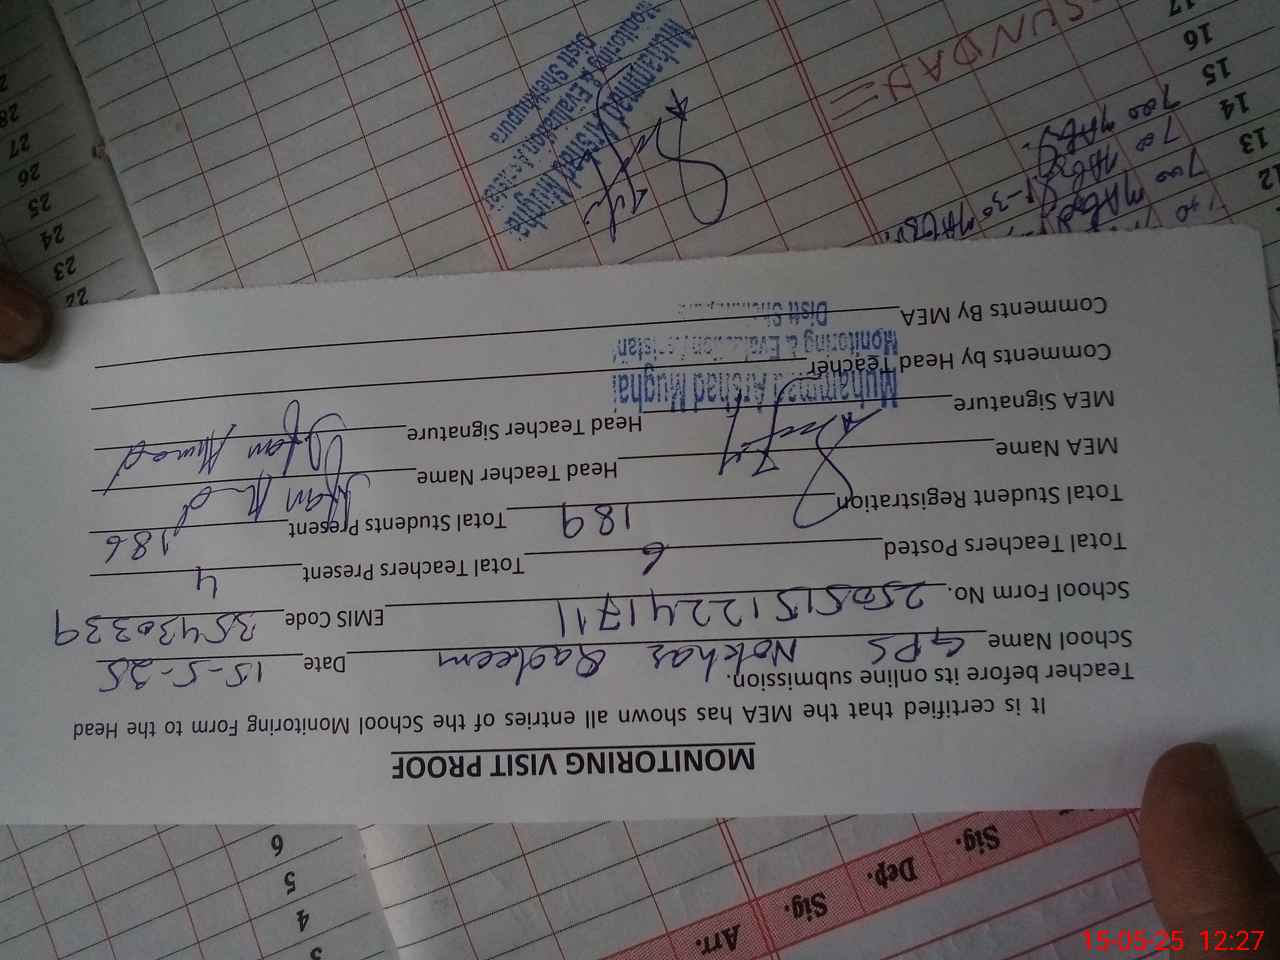 MONITORING VISIT PROOF
It is certified that the MEA has shown all entries of the School Monitoring Form to the Head
Teacher before its online submission.
School Name GPS Nokhar Qadeem Date 15-5-25
School Form No. 25051512241711 EMIS Code 35430339
Total Teachers Posted 6 Total Teachers Present 4
Total Student Registration 189 Total Students Present 186
MEA Name Head Teacher Name
MEA Signature Head Teacher Signature
Muhammad Arshad Mughal
Comments by Head Teacher
Monitoring & Evaluation Assistant
Comments By MEA
Muhammad Arshad Mughal
Monitoring & Evaluation Assistant
Distt Sheikhupura
SUNDAY
12
13
14
15
16
17
22
23
24
25
26
27
28
Arr. Sig. Dep. Sig.
3
4
5
6
15-05-25 12:27